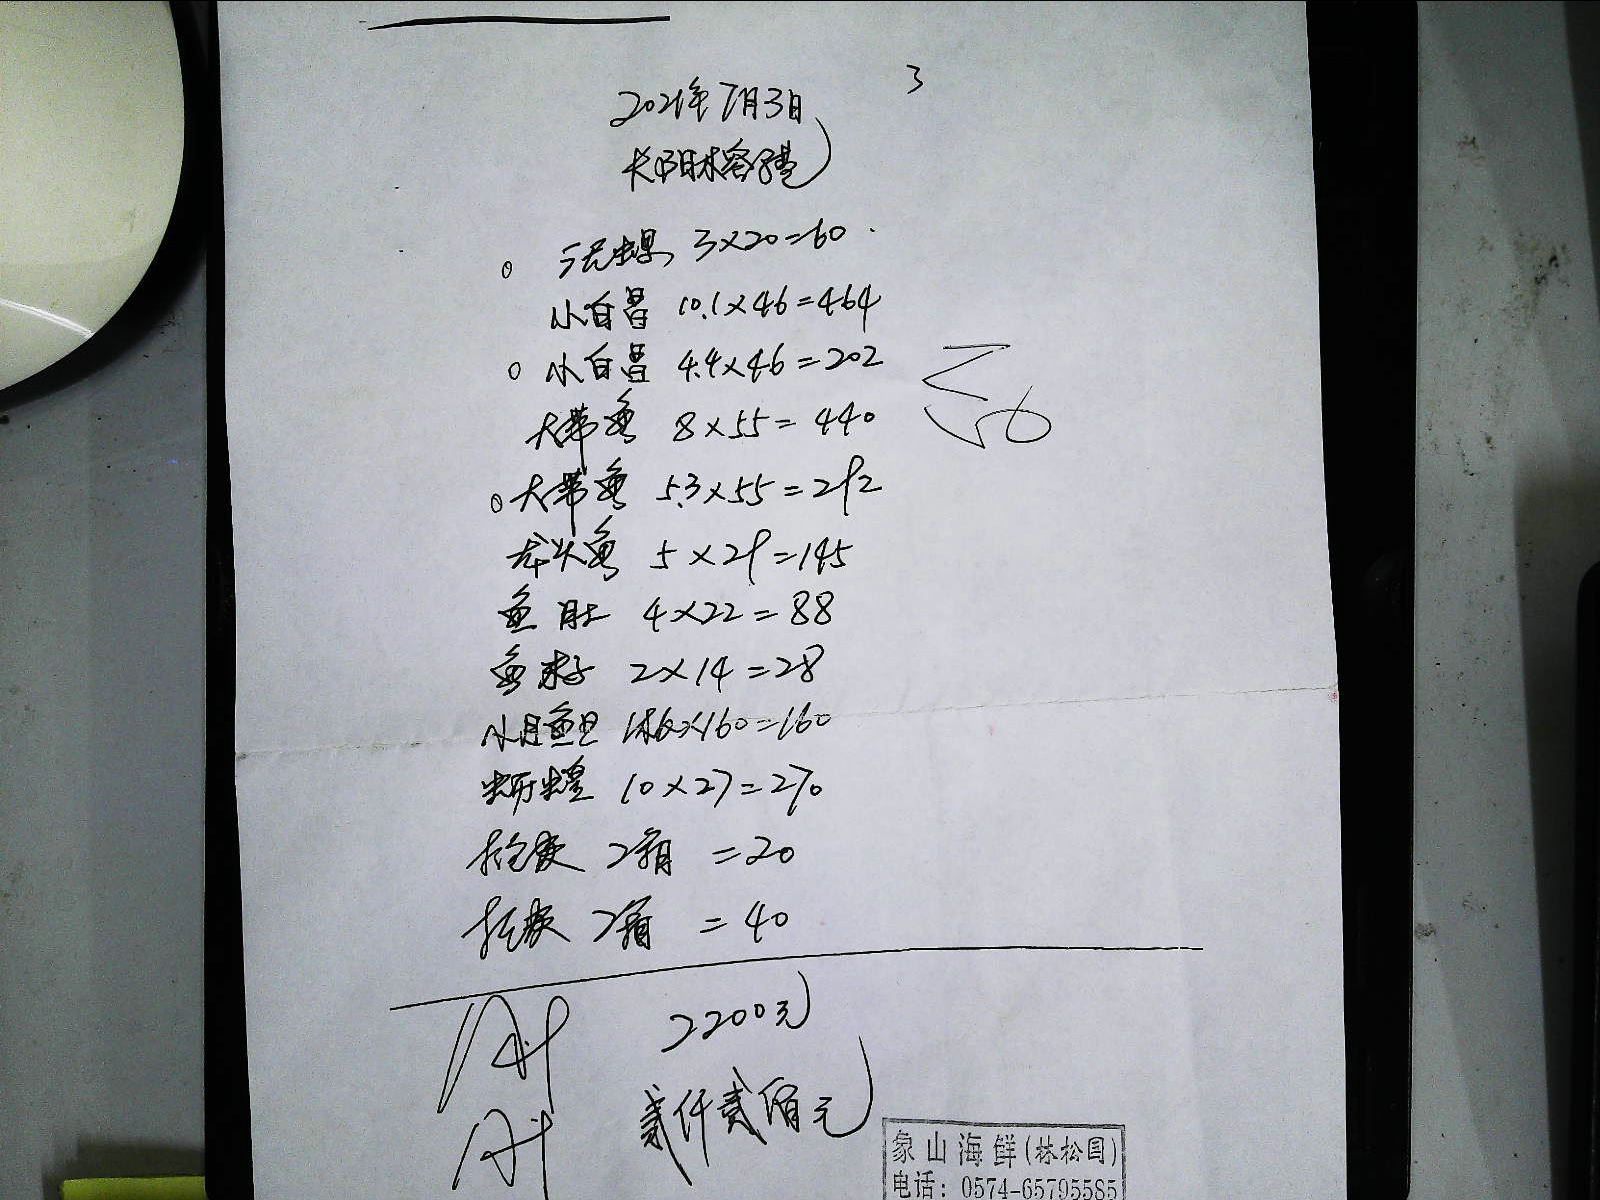 3
2021年7月3日
太阳木客楼
泥螺 3×20=60
小白昌 10.1×46=464
小白昌 4.4×46=202
大带鱼 8×55=440
大带鱼 5.3×55=292
龙头鱼 5×29=145
鱼肚 4×22=88
鱼籽 2×14=28
160=160
10×27=270
2箱 =20
2箱 =40
2200元
贰仟贰佰元
象山海鲜(林松园)
电话: 0574-65795585